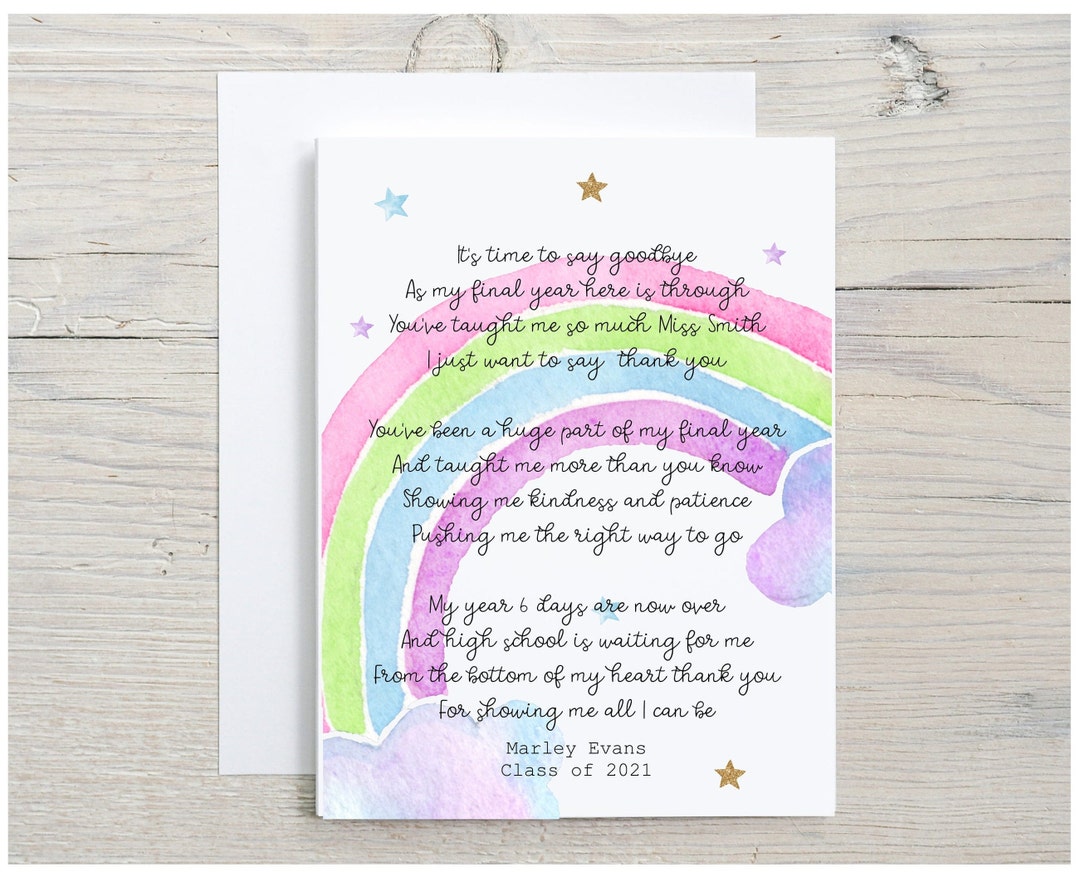 It's time to say goodbye
As my final year here is through
You've taught me so much Miss Smith
I just want to say thank you
You've been a huge part of my final year
And taught me more than you know
Showing me kindness and patience
Pushing me the right way to go
My year 6 days are now over
And high school is waiting for me
From the bottom of my heart thank you
For showing me all I can be
Marley Evans
Class of 2021